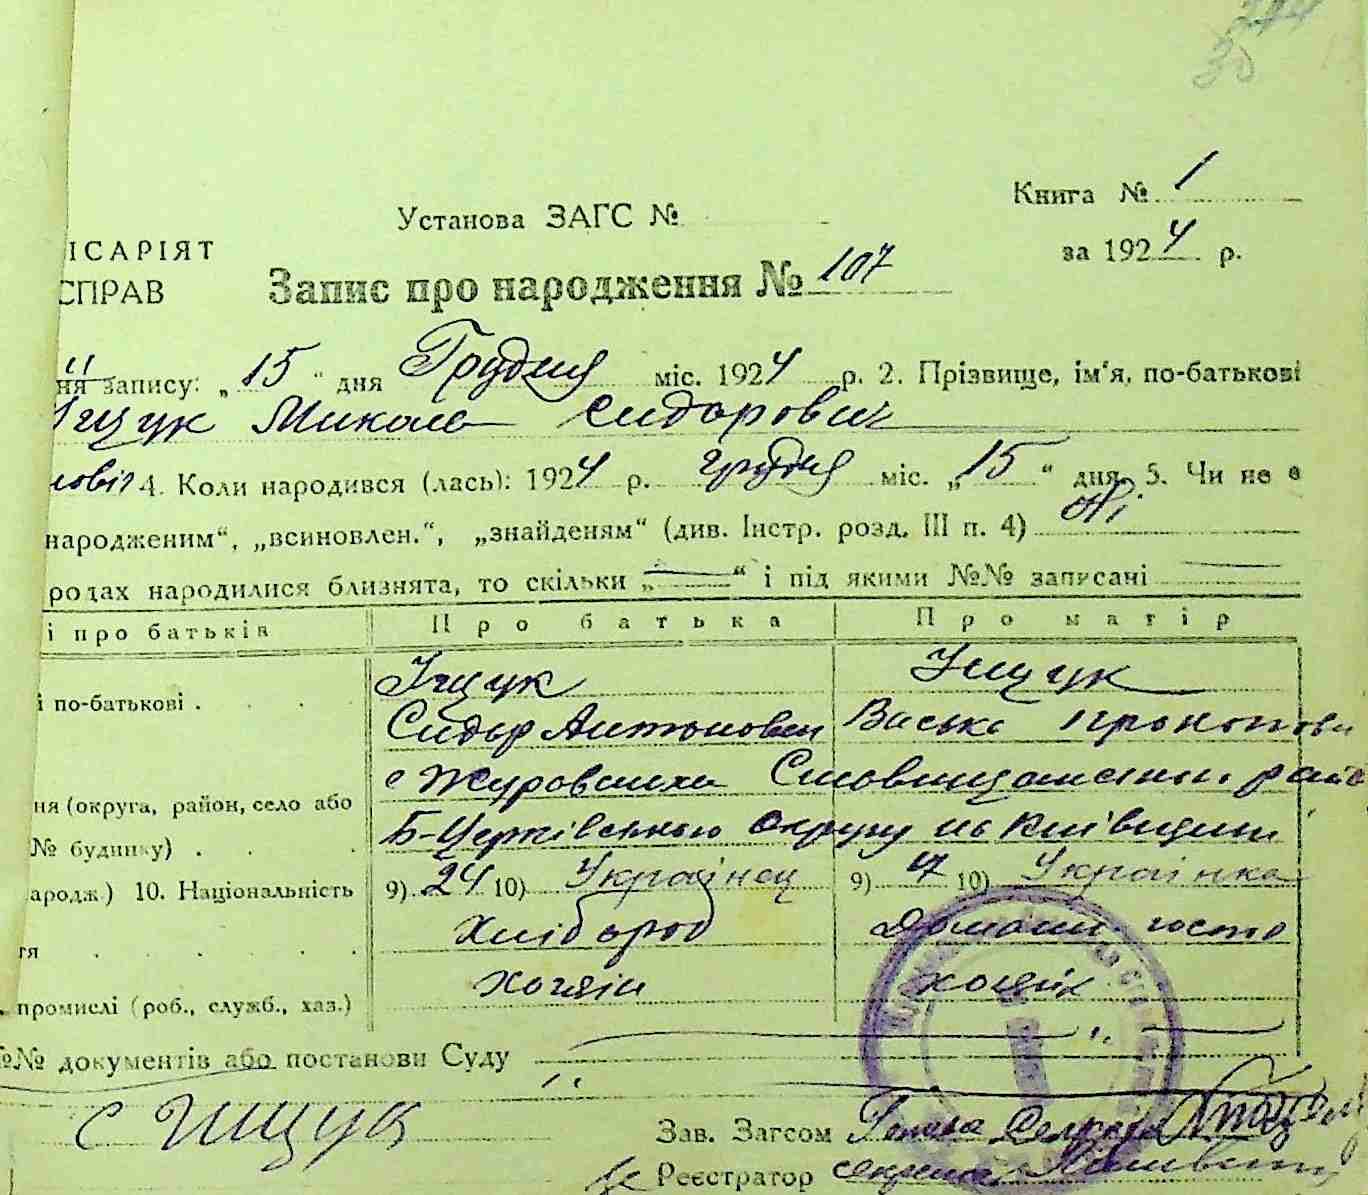 30
Книга № 1
Установа ЗАГС №
за 1924 р.
ІСАРІЯТ
СПРАВ
Запис про народження № 107
ня запису: „15“ дня Грудня міс. 1924 р. 2. Прізвище, ім'я, по-батькові
Іщук Микола Сидорович
4. Коли народився (лась): 1924 р. грудня міс. „15“ дня. 5. Чи не є
народженим“, „всиновлен.“, „знайденям“ (див. Інстр. розд. III п. 4) Ні
родах народилися близнята, то скільки „—“ і під якими №№ записані —
і про батьків Про батька Про матір
і по-батькові . Іщук Іщук
Сидор Антонович Васька Прокопови
ня (округа, район, село або с Журовлиха райо
№ будинку) . Б-Церківською округу на Київщині
ародж.) 10. Національність 9) 24 10) Українец 9) 17 10) Українка
тя Хлібороб Домашн. госпо
промислі (роб., служб., хаз.) хозяїн
№№ документів або постанови Суду
с Іщук
Зав. Загсом Голова
Реєстратор секретар